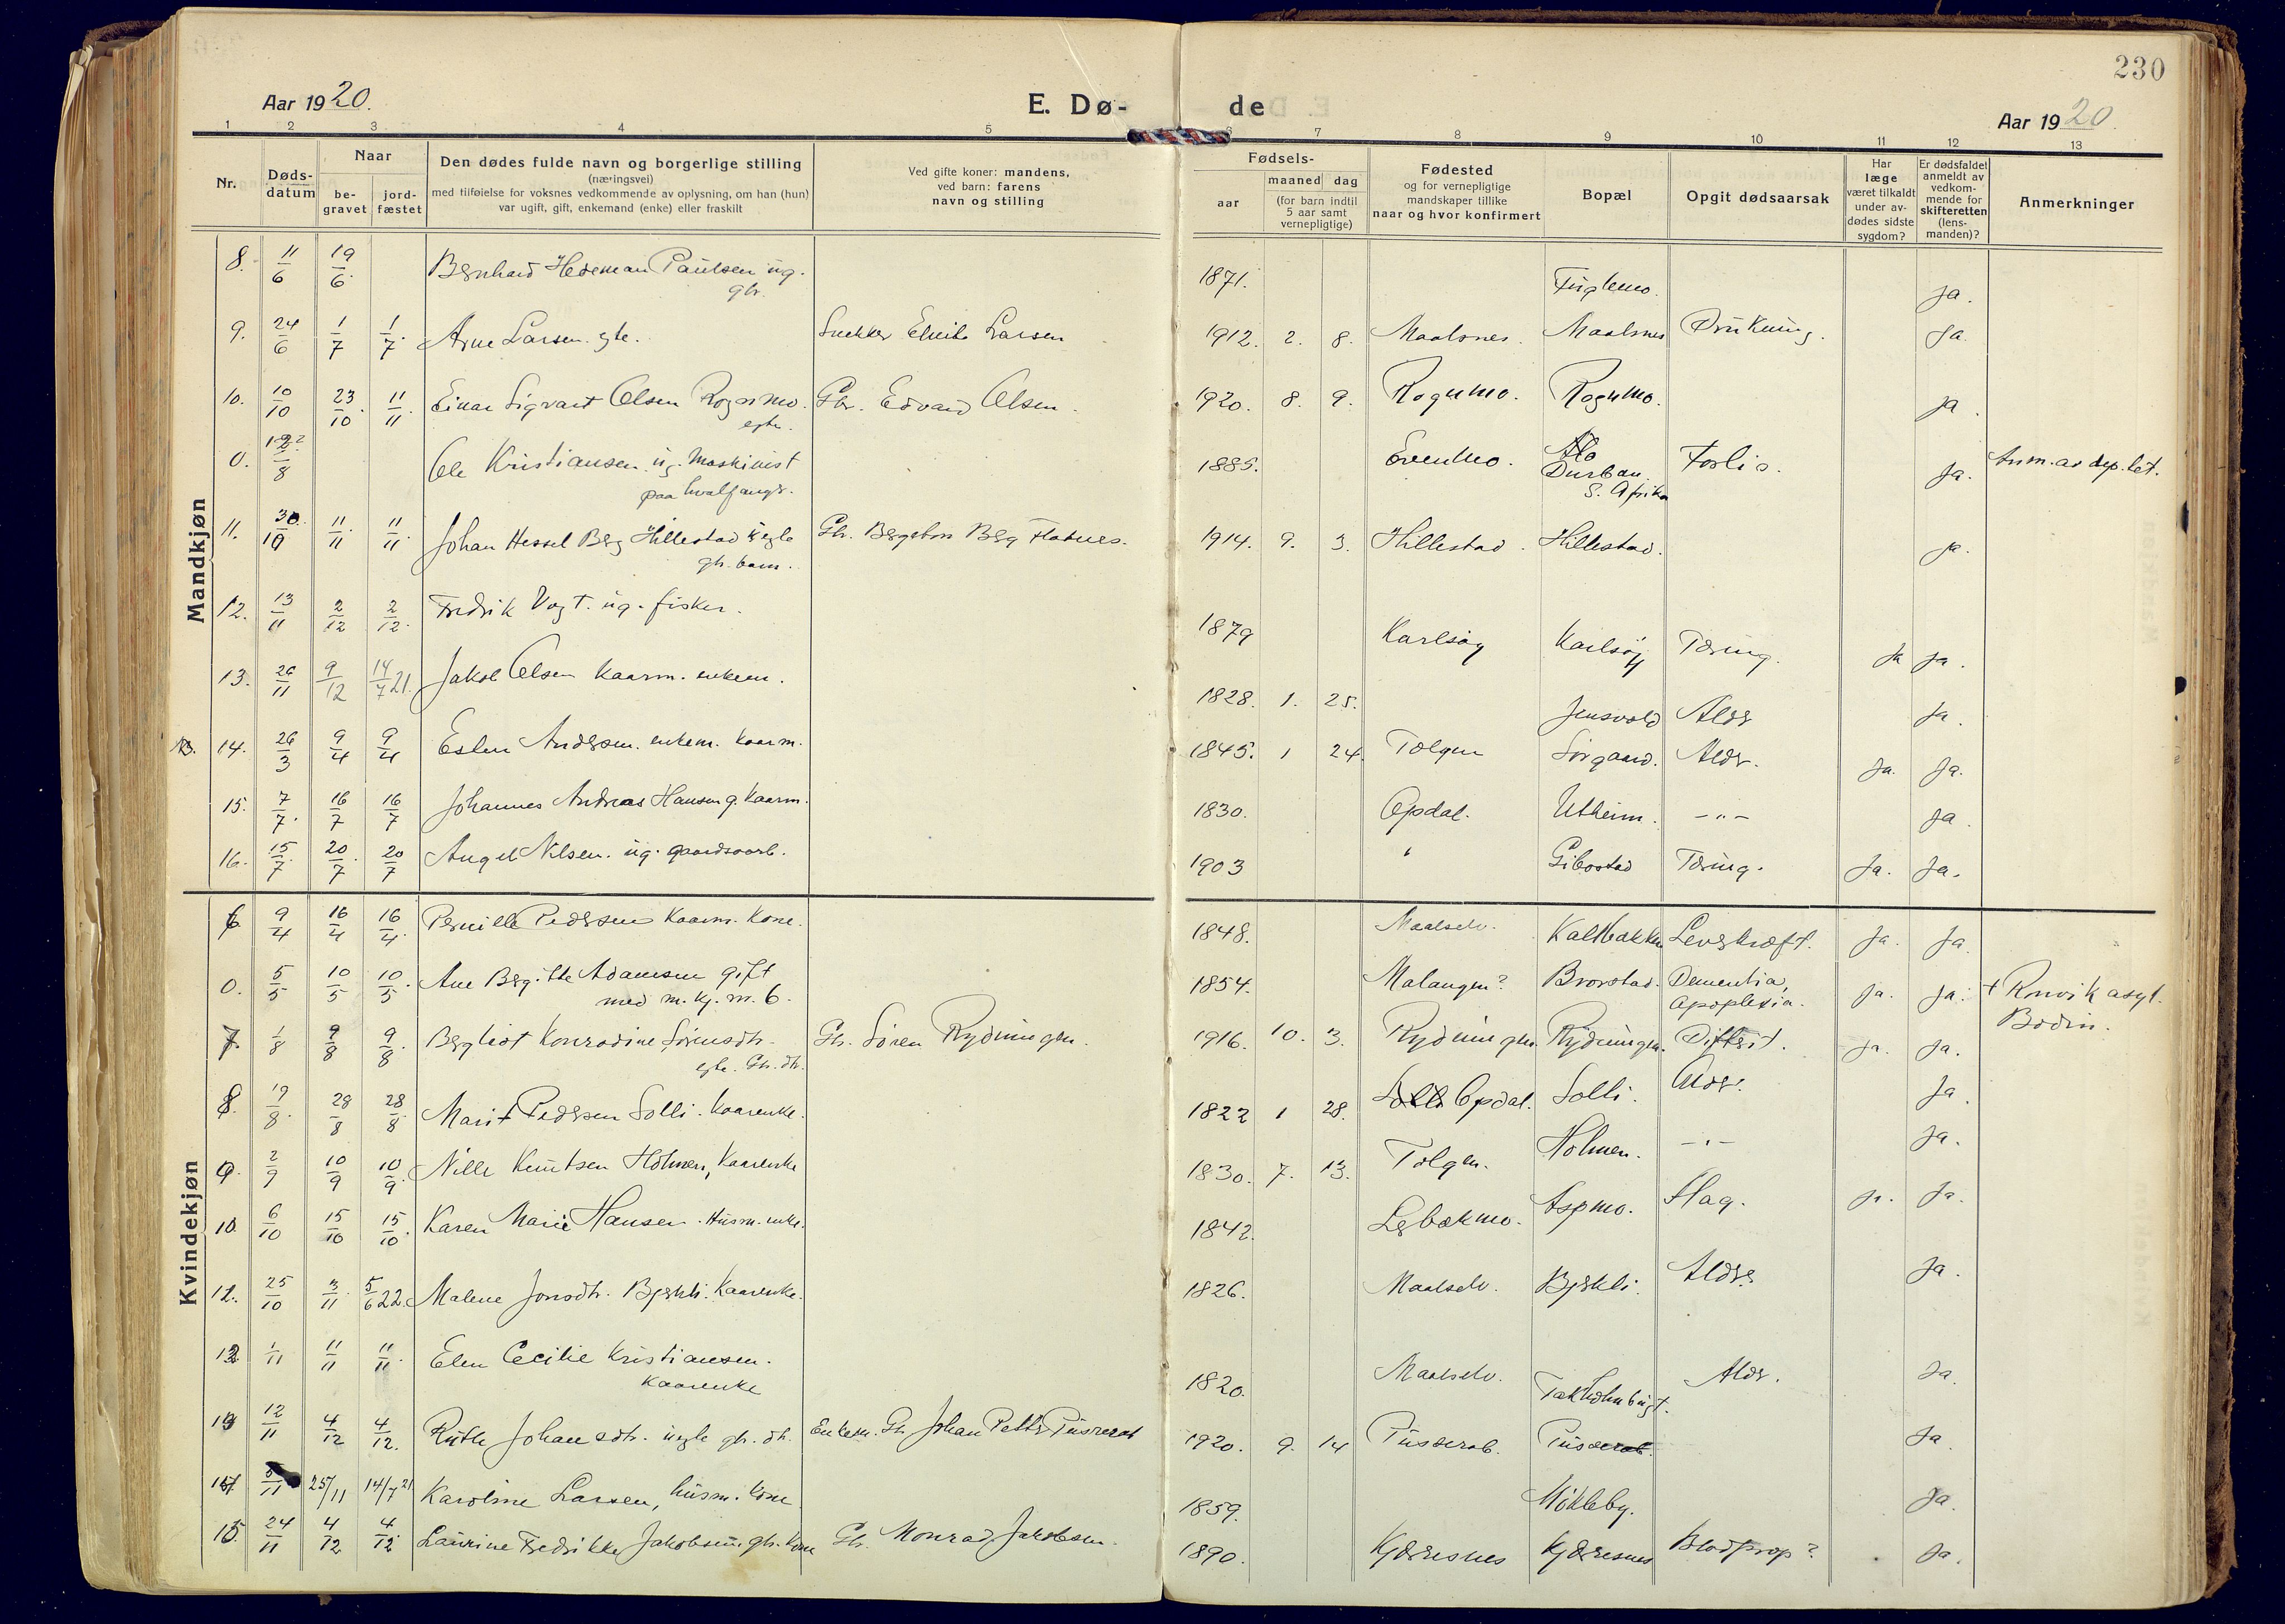 230
Aar 1920.
E. Dø- de
Aar 1920.
1 2 3 4 5 6 7 8 9 10 11 12 13
Nr.
Døds-
datum
Naar
be-
gravet
jord-
fæstet
Den dødes fulde navn og borgerlige stilling
(næringsvei)
med tilføielse for voksnes vedkommende av oplysning, om han (hun)
var ugift, gift, enkemand (enke) eller fraskilt
Ved gifte koner: mandens,
ved barn: farens
navn og stilling
Fødsels-
aar
maaned dag
(for barn indtil
5 aar samt
vernepligtige)
Fødested
og for vernepligtige
mandskaper tillike
naar og hvor konfirmert
Bopæl
Opgit dødsaarsak
Har
læge
været tilkaldt
under av-
dødes sidste
sygdom?
Er dødsfaldet
anmeldt av
vedkom-
mende for
skifteretten
(lens-
manden)?
Anmerkninger
Mandkjøn
8. 11/6 19/6. Bernhard Hedeman Paulsen ug. 1871. Fuglemo. Ja.
gbr.
9. 24/6 1/7 1/7. Arne Larsen. gte. Snekker Larsen 1912. 2. 8. Maalsnes. Maalsnes Drukning. Ja.
10. 10/10 23/10. 11/11. Einar Sigvart Olsen Rognmo. Gbr. Edvard Olsen. 1920. 8. 9. Rognmo. Rognmo. Ja.
egte.
0. /8 Ole Kristiansen. ug. Maskinist 1885. Evenmo. Durban Forlis. Ja. Anm. av dep. let.
paa hvalfangs. S. Afrika
11. 30/10 11/11. 11/11. Johan Hessel Berg Hillestad uegte Gbr. Bergeton Berg 1914. 9. 3. Hillestad. Hillestad. Ja.
gb. barn.
12. 13/11 2/12 2/12. Fredrik Vogt. ug. fisker. 1879 Karlsøy Karlsøy Tæring. Ja Ja.
13. 26/11 9/12 14/7 21. Jakob Olsen Kaarm. enkem. 1828. 1. 25. Jensvold Alder Ja.
14. 26/3 9/4 9/4 Esten Andersen. enkem. kaarm. 1845. 1 24. Tolgen Sørgaard. Alder. Ja. Ja.
15. 7/7. 16/7 16/7 Johannes Andreas Hansen g. Kaarm. 1830. Opdal. Utheim. -"- Ja.
16. 15/7. 20/7. 20/7 Angel Nilsen. ug. gaardsarb. 1903 " Gibostad Tæring. Ja. Ja.
Kvindekjøn
6 9/4 16/4 16/4. Pernille Pedersen Kaarm. Kone. 1848. Maalselv. Kaldbakken Leverkræft. Ja. Ja
0. 5/5 10/5 10/5 Ane Bergitte Adamsen gift 1854. Malangen? Brorstad. Dementia, Ja. Ja. + Rønvik asyl.
med m. kj. nr. 6. Apoplexia. Bodin.
7. 1/8 9/8 9/8. Bergliot Konradine Sørensdtr. Gbr. Søren Rydningen. 1916. 10. 3. Rydningen. Rydningen. Difterit. Ja. Ja.
egte. Gb. dtr.
8. 19/8. 28/8 28/8 Marit Pedersen Solli. kaarenke. 1822 1 28. Opdal. Solli. Alder. Ja.
9. 2/9 10/9 10/9. Nille Knutsen Holmen, Kaarenke 1830. 7. 13. Tolgen. Holmen. -"- Ja.
10. 6/10 15/10 15/10. Karen Marie Hansen. Husm. enke. 1842. Lerbakmo. Aspmo. Slag. Ja. Ja.
11. 25/10 3/11. 5/6 22. Malene Jonsdtr. Bjerkli. Kaarenke. 1826. Maalselv. Bjerkli. Alder Ja.
12 1/11 11/11 11/11. Elen Cecilie Kristiansen. 1820. Maalselv. Alder. Ja.
kaarenke
13 12/11 4/12 4/12. Ruth Johansdtr. uegte gb. dtr. Enkem. Gb Johan Petter 1920. 9. 14 Ja
/11 25/11 14/7 21 Karoline Larsen, husm. kone 1859. Møkleby. Ja.
15 24/11 4/12 4/12. Laurine Fredrikke Jakobsen gb. kone Gb. Monrad Jakobsen. 1890. Kjerresnes Kjerresnes Blodprop? Ja.